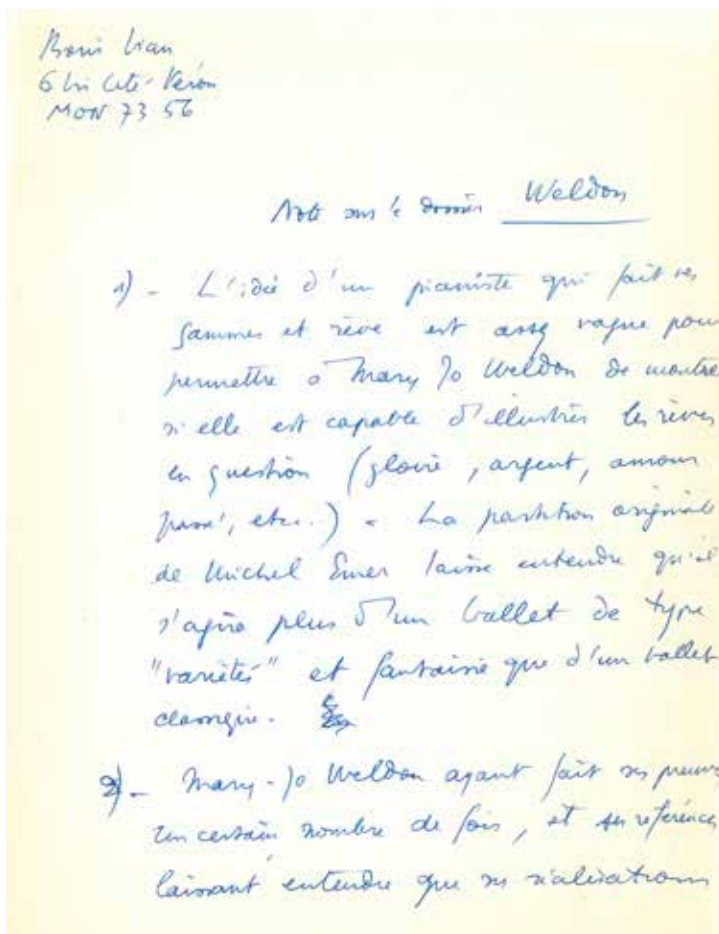 Boris Vian
6 bis Cité Véron
MON 73 56
Note sur le dossier Weldon
1) - L'idée d'un pianiste qui fait ses
gammes et rêve est assez vague pour
permettre à Mary Jo Weldon de montrer
si elle est capable d'illustrer les rêves
en question (gloire, argent, amour
passé, etc..) - La partition originale
de Michel Emer laisse entendre qu'il
s'agira plus d'un ballet de type
"variétés" et fantaisie que d'un ballet
classique.
2) - Mary-Jo Weldon ayant fait ses preuves
un certain nombre de fois, et ses références
laissant entendre que ses réalisations